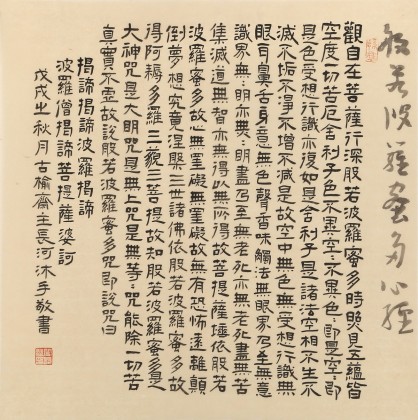 般若波羅蜜多心經
觀自在菩薩行深般若波羅蜜多時照見五蘊皆
空度一切苦厄舍利子色不異空〻不異色〻即是空〻即
是色受想行識亦復如是舍利子是諸法空相不生不
滅不垢不淨不增不減是故空中無色無受想行識無
眼耳鼻舌身意無色聲香味觸法無眼界乃至無意
識界無〻明亦無〻明盡乃至無老死亦無老死盡無苦
集滅道無智亦無得以無所得故菩提薩埵依般若
波羅蜜多故心無罣礙無罣礙故無有恐怖遠離顛
倒夢想究竟涅槃三世諸佛依般若波羅蜜多故
得阿耨多羅三藐三菩提故知般若波羅蜜多是
大神咒是大明咒是無上咒是無等〻咒能除一切苦
真實不虛故說般若波羅蜜多咒即說咒曰
揭諦揭諦波羅揭諦
波羅僧揭諦菩提薩婆訶
戊戌之秋月古榆齋主長河沐手敬書